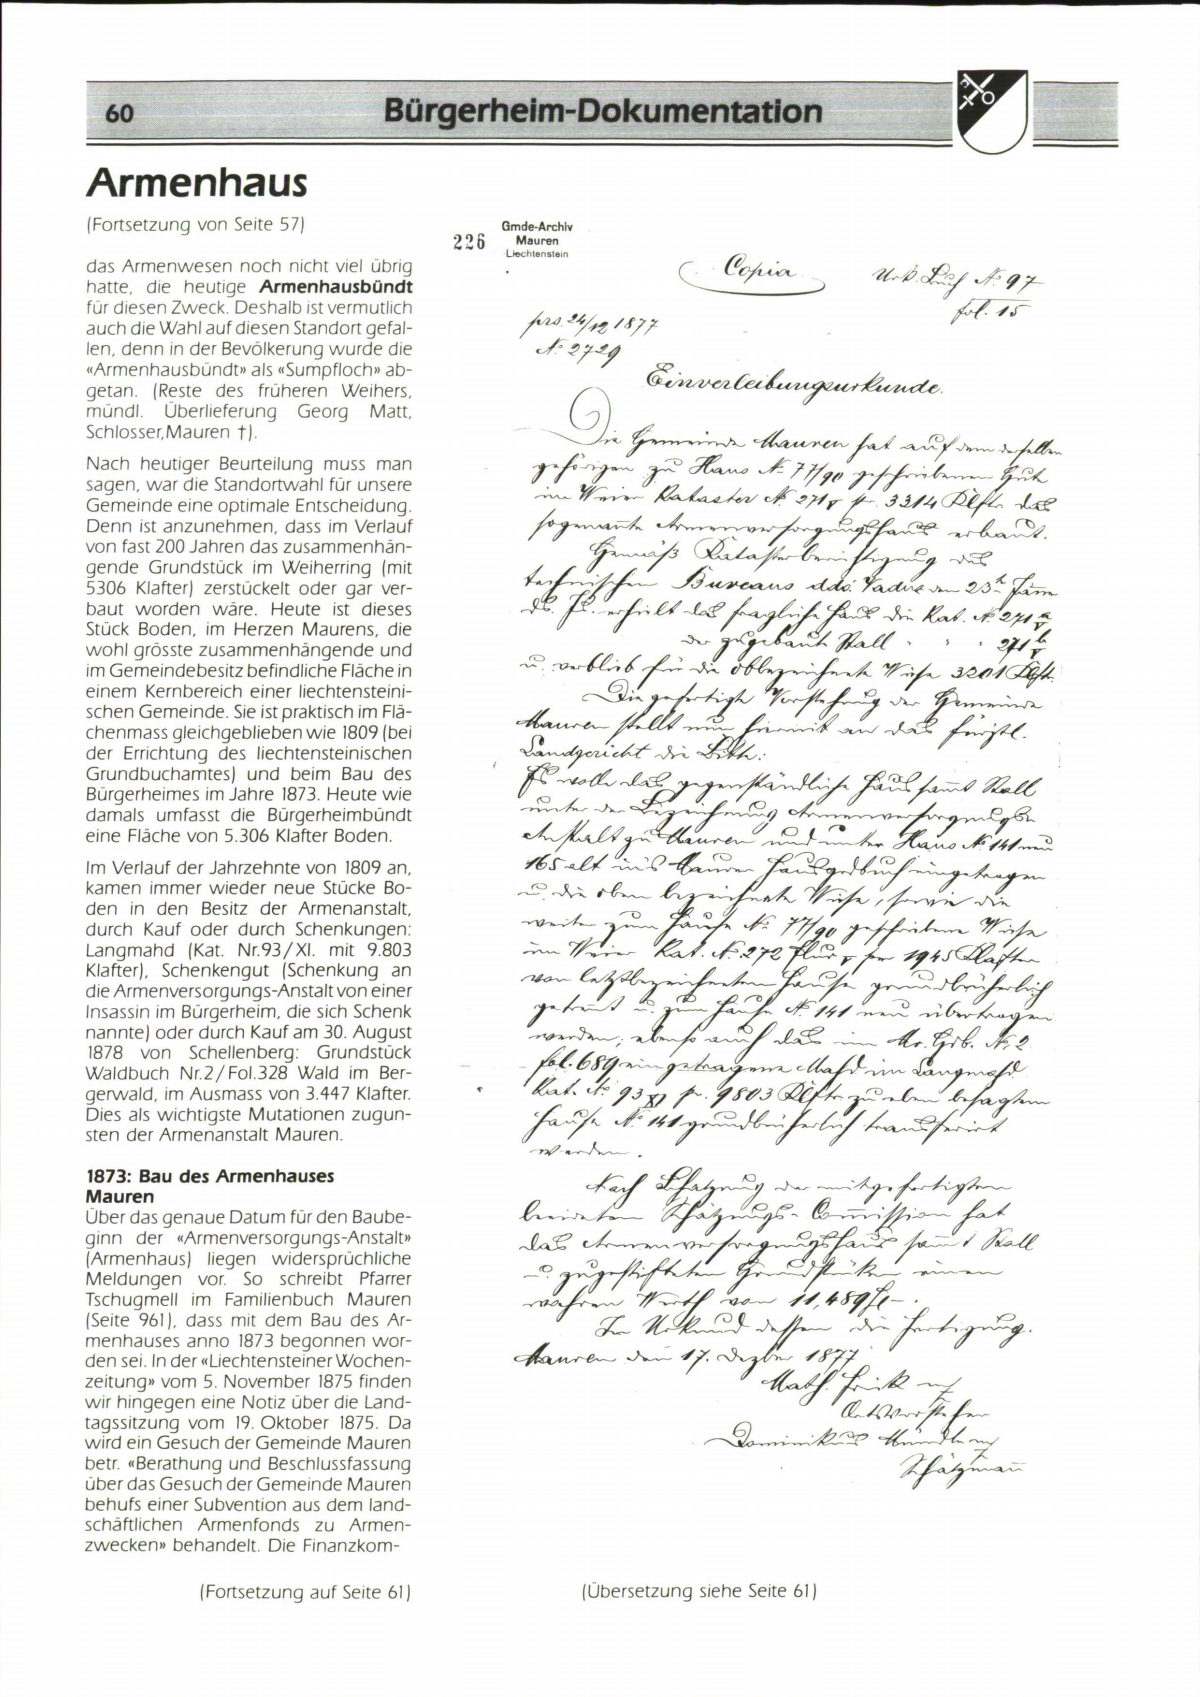 60
Bürgerheim-Dokumentation
Armenhaus
(Fortsetzung von Seite 57)
das Armenwesen noch nicht viel übrig
hatte, die heutige Armenhausbündt
für diesen Zweck. Deshalb ist vermutlich
auch die Wahl auf diesen Standort gefal-
len, denn in der Bevölkerung wurde die
«Armenhausbündt» als «Sumpfloch» ab-
getan. (Reste des früheren Weihers,
mündl. Überlieferung Georg Matt,
Schlosser,Mauren †).
Nach heutiger Beurteilung muss man
sagen, war die Standortwahl für unsere
Gemeinde eine optimale Entscheidung.
Denn ist anzunehmen, dass im Verlauf
von fast 200 Jahren das zusammenhän-
gende Grundstück im Weiherring (mit
5306 Klafter) zerstückelt oder gar ver-
baut worden wäre. Heute ist dieses
Stück Boden, im Herzen Maurens, die
wohl grösste zusammenhängende und
im Gemeindebesitz befindliche Fläche in
einem Kernbereich einer liechtensteini-
schen Gemeinde. Sie ist praktisch im Flä-
chenmass gleichgeblieben wie 1809 (bei
der Errichtung des liechtensteinischen
Grundbuchamtes) und beim Bau des
Bürgerheimes im Jahre 1873. Heute wie
damals umfasst die Bürgerheimbündt
eine Fläche von 5.306 Klafter Boden.
Im Verlauf der Jahrzehnte von 1809 an,
kamen immer wieder neue Stücke Bo-
den in den Besitz der Armenanstalt,
durch Kauf oder durch Schenkungen:
Langmahd (Kat. Nr.93/XI. mit 9.803
Klafter), Schenkengut (Schenkung an
die Armenversorgungs-Anstalt von einer
Insassin im Bürgerheim, die sich Schenk
nannte) oder durch Kauf am 30. August
1878 von Schellenberg: Grundstück
Waldbuch Nr.2/Fol.328 Wald im Ber-
gerwald, im Ausmass von 3.447 Klafter.
Dies als wichtigste Mutationen zugun-
sten der Armenanstalt Mauren.
1873: Bau des Armenhauses
Mauren
Über das genaue Datum für den Baube-
ginn der «Armenversorgungs-Anstalt»
(Armenhaus) liegen widersprüchliche
Meldungen vor. So schreibt Pfarrer
Tschugmell im Familienbuch Mauren
(Seite 961), dass mit dem Bau des Ar-
menhauses anno 1873 begonnen wor-
den sei. In der «Liechtensteiner Wochen-
zeitung» vom 5. November 1875 finden
wir hingegen eine Notiz über die Land-
tagssitzung vom 19. Oktober 1875. Da
wird ein Gesuch der Gemeinde Mauren
betr. «Berathung und Beschlussfassung
über das Gesuch der Gemeinde Mauren
behufs einer Subvention aus dem land-
schäftlichen Armenfonds zu Armen-
zwecken» behandelt. Die Finanzkom-
(Fortsetzung auf Seite 61)
226
Gmde-Archiv
Mauren
Liechtenstein
Copia
Urk. Buch No. 97
fol. 15
prs. 24/12 1877
No. 2729
Einverleibungsurkunde.
Die Gemeinde Mauren hat auf dem derselben
gehörigen zu Haus No 77/90 geschriebenen Gute
im Weier Kataster No 271 V pr. 3314 Klftr das
sogenannte Armenversorgungshaus erbaut.
Gemäß Katasterberichtigung des
technischen Bureaus ddo. Vaduz den 23t Jänn
ds. Js. erhielt das fragliche Haus die Kat. No 271 a/V
der zugebaute Stall " " 271 b/V
u. verblieb für die obbezeichnete Wiese 3201 Klft.
Die gefertigte Vorstehung der Gemeinde
Mauren stellt nun hiermit an das fürstl.
Landgericht die Bitte:
Es wolle das gegenständliche Haus sammt Stall
unter der Bezeichnung Armenversorgungs
Anstalt zu Mauren und unter Haus No 141 neu
165 alt ins Maurer Hausgrdbuch eingetragen
u. die oben bezeichnete Wiese, sowie die
weiter zum Hause No 77/90 geschriebene Wiese
im Weier Kat. No 272 Flur V per 1945 Klafter
von letztbezeichnetem Hause grundbücherlich
getrennt u. zum Hause No 141 neu übertragen
werden, ebenso auch das im Mr. Grb. No. 2
fol. 689 eingetragene Mahd im Langmahd
Kat. No 93 XI pr. 9803 Klftr zu eben besagtem
Hause No 141 grundbücherlich transferirt
werden.
Nach Schatzung der mitgefertigten
beeideten Schätzungs-Commission hat
das Armenversorgungshaus sammt Stall
u. zugestifteten Grundstücken einen
wahren Werth von 11,489 fl -.
In Urkund dessen die Fertigung.
Mauren den 17. Dezber 1877
Math. Frick
Ortsvorsteher
Dominikus Mündle
Schätzmann
(Übersetzung siehe Seite 61)